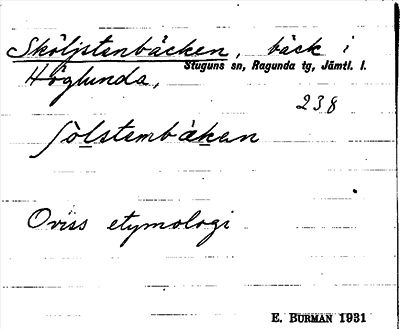 Sköljstenbäcken, bäck i
Stuguns sn, Ragunda tg, Jämtl. l.
Höglunda,
238
ʃòlstembàken
Oviss etymologi
E. BURMAN 1931